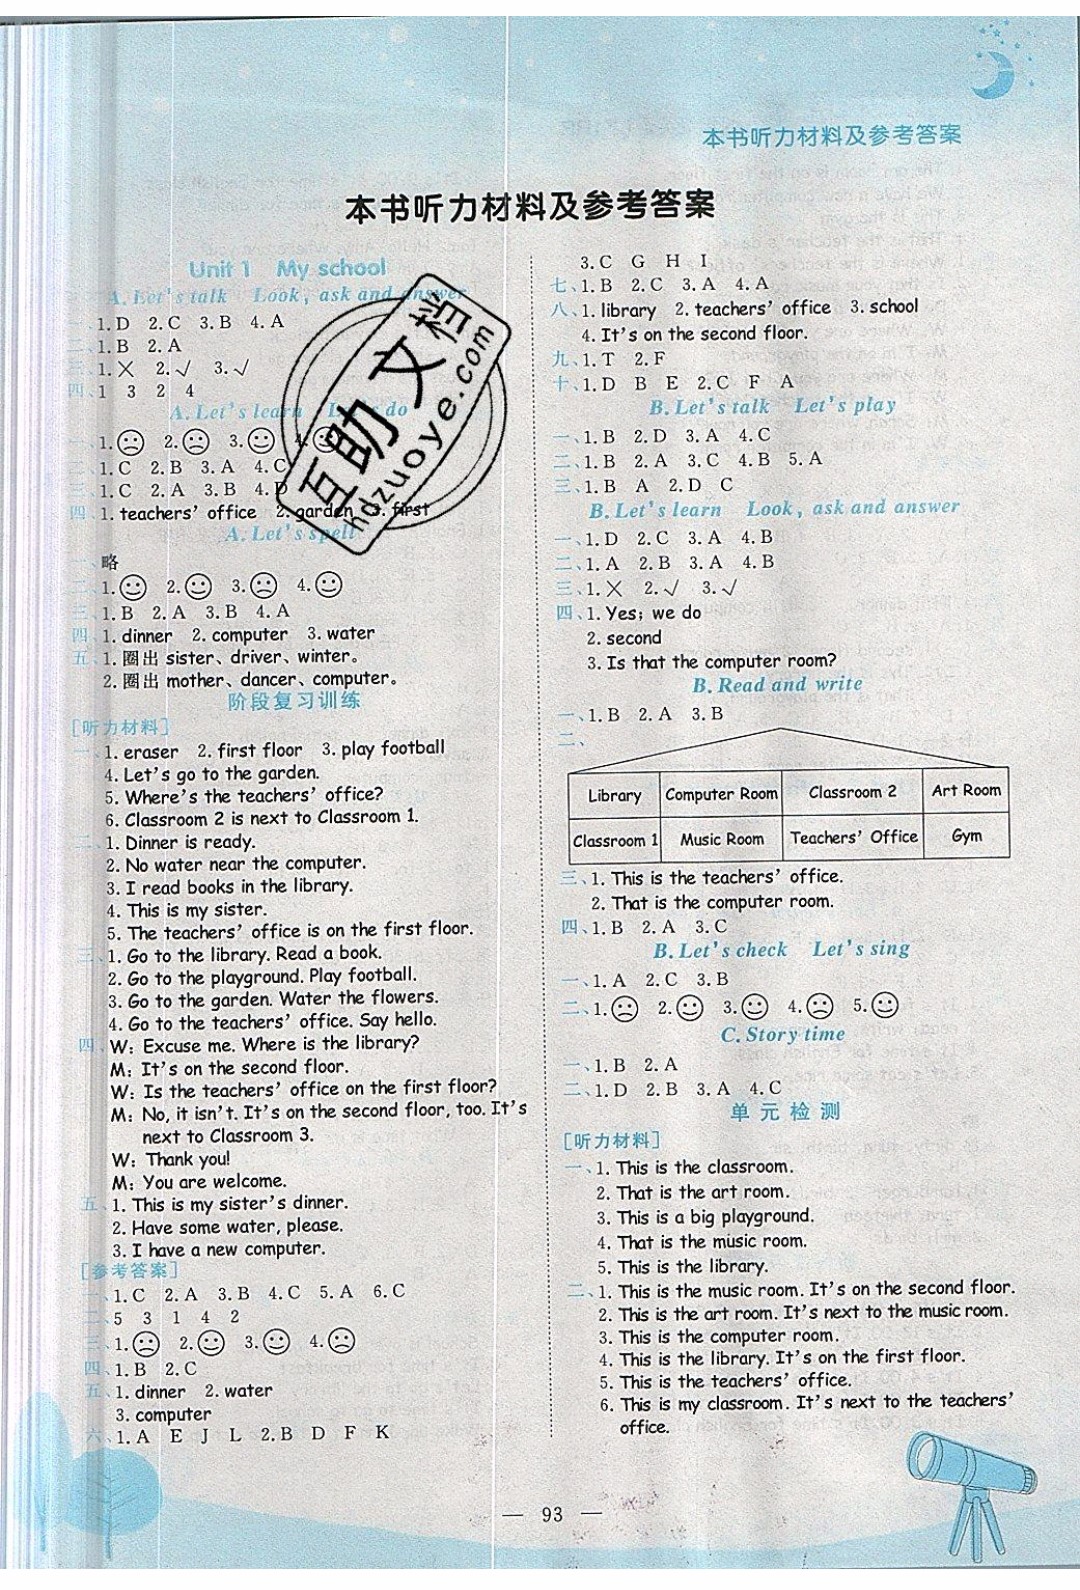 本书听力材料及参考答案
本书听力材料及参考答案
Unit 1 My school
A. Let's talk Look, ask and answer
一、1. D 2. C 3. B 4. A
二、1. B 2. A
三、1. ✗ 2. √ 3. √
四、1 3 2 4
A. Let's learn Let's do
一、1. ☹ 2. ☹ 3. ☺ 4.
二、1. C 2. B 3. A 4. C
三、1. C 2. A 3. B 4. D
四、1. teachers' office 2. garden 3. first
A. Let's spell
一、略
二、1. ☺ 2. ☺ 3. ☹ 4. ☺
三、1. B 2. A 3. B 4. A
四、1. dinner 2. computer 3. water
五、1. 圈出 sister、driver、winter。
2. 圈出 mother、dancer、computer。
阶段复习训练
[听力材料]
一、1. eraser 2. first floor 3. play football
4. Let's go to the garden.
5. Where's the teachers' office?
6. Classroom 2 is next to Classroom 1.
二、1. Dinner is ready.
2. No water near the computer.
3. I read books in the library.
4. This is my sister.
5. The teachers' office is on the first floor.
三、1. Go to the library. Read a book.
2. Go to the playground. Play football.
3. Go to the garden. Water the flowers.
4. Go to the teachers' office. Say hello.
四、W: Excuse me. Where is the library?
M: It's on the second floor.
W: Is the teachers' office on the first floor?
M: No, it isn't. It's on the second floor, too. It's
next to Classroom 3.
W: Thank you!
M: You are welcome.
五、1. This is my sister's dinner.
2. Have some water, please.
3. I have a new computer.
[参考答案]
一、1. C 2. A 3. B 4. C 5. A 6. C
二、5 3 1 4 2
三、1. ☹ 2. ☺ 3. ☺ 4. ☹
四、1. B 2. C
五、1. dinner 2. water
3. computer
六、1. A E J L 2. B D F K
3. C G H I
七、1. B 2. C 3. A 4. A
八、1. library 2. teachers' office 3. school
4. It's on the second floor.
九、1. T 2. F
十、1. D B E 2. C F A
B. Let's talk Let's play
一、1. B 2. D 3. A 4. C
二、1. B 2. A 3. C 4. B 5. A
三、1. B A 2. D C
B. Let's learn Look, ask and answer
一、1. D 2. C 3. A 4. B
二、1. A 2. B 3. A 4. B
三、1. ✗ 2. √ 3. √
四、1. Yes; we do
2. second
3. Is that the computer room?
B. Read and write
一、1. B 2. A 3. B
二、
Library Computer Room Classroom 2 Art Room
Classroom 1 Music Room Teachers' Office Gym
三、1. This is the teachers' office.
2. That is the computer room.
四、1. B 2. A 3. C
B. Let's check Let's sing
一、1. A 2. C 3. B
二、1. ☹ 2. ☺ 3. ☺ 4. ☹ 5. ☺
C. Story time
一、1. B 2. A
二、1. D 2. B 3. A 4. C
单元检测
[听力材料]
一、1. This is the classroom.
2. That is the art room.
3. This is a big playground.
4. That is the music room.
5. This is the library.
二、1. This is the music room. It's on the second floor.
2. This is the art room. It's next to the music room.
3. This is the computer room.
4. This is the library. It's on the first floor.
5. This is the teachers' office.
6. This is my classroom. It's next to the teachers'
office.
— 93 —
互助文档
hdzuoye.com